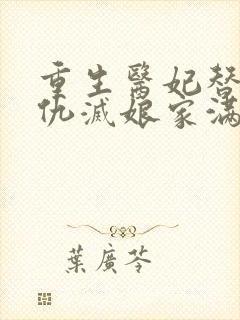 重生醫妃替
仇滅娘家滿
葉廣芩